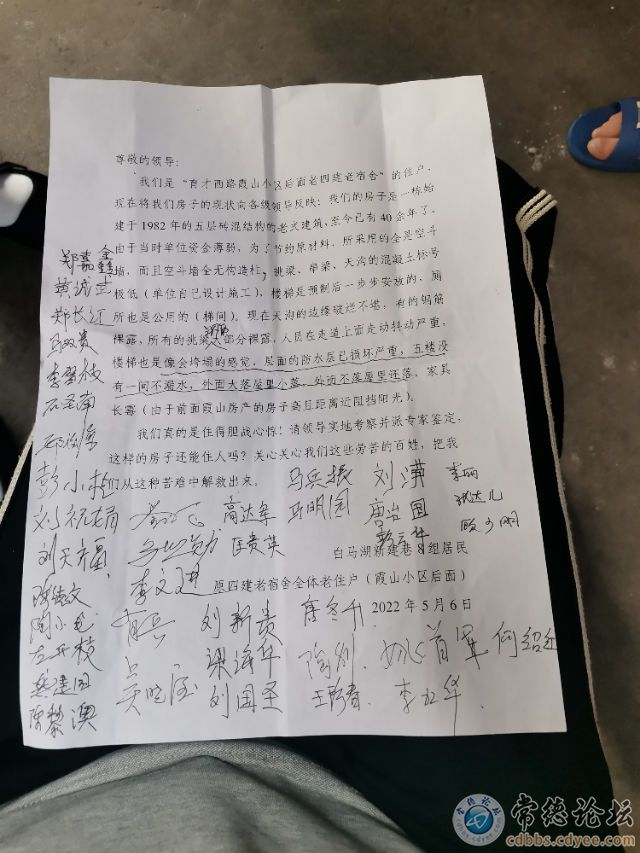 尊敬的领导:
我们是“育才西路霞山小区后面老四建老宿舍”的住户,
现在将我们房子的现状向各级领导反映:我们的房子是一栋始
建于1982年的五层砖混结构的老式建筑,至今已有40余年了。
由于当时单位资金薄弱,为了节约原材料,所采用的全是空斗
墙,而且空斗墙全无构造柱,挑梁、单梁、天沟的混凝土标号
极低(单位自己设计施工),楼梯是预制后一步步安放的,厕
所也是公用的(梯间)。现在天沟的边缘破烂不堪,有的钢筋
裸露,所有的挑梁大部分裸露,人员在走道上面走动抖动严重,
楼梯也是像会垮塌的感觉。层面的防水层已损坏严重,五楼没
有一间不漏水,外面大落屋里小落,外面不落屋里还落,家具
长霉(由于前面霞山房产的房子高且距离近阻挡阳光)。
我们真的是住得胆战心惊!请领导实地考察并派专家鉴定,
这样的房子还能住人吗?关心关心我们这些劳苦的百姓,把我
们从这种苦难中解救出来。
郑嘉鑫
郑长江
彭小桂
刘祝娟
高达军
马兵振
马明园
唐治国
李丽
刘天福
匡贵英
白马湖新建巷8组居民
李文进
原四建老宿舍全体老住户(霞山小区后面)
陶小毛
刘新贵
唐冬千
2022年5月6日
梁海华
何绍红
刘国圣
李红华
陈黎澳
常德论坛
cdbbs.cdyee.com